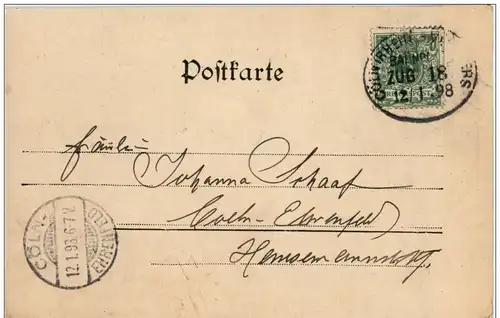 CÖLN (RHEIN)
BAHNPOST
ZUG 18
12 1 98
Postkarte
Fräulein
Johanna Schaaf
Coeln-Ehrenfeld
Hansemannstr.
CÖLN-
12.1.98.6-7N.
EHRENFELD